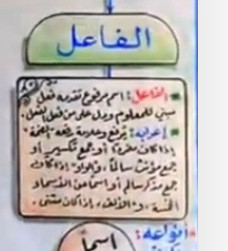 الفاعل
الفاعل: اسم مرفوع تقدمه فعل
مبني للمعلوم ودل على من فعل الفعل.
إعرابه: يرفع وعلامة رفعه "الضمة"
إذا كان مفردًا أو جمع تكسير أو
جمع مؤنث سالمًا، و"الواو" إذا كان
جمع مذكر سالم أو اسمًا من الأسماء
الخمسة، و"الألف" إذا كان مثنى.
أنواعه:
اسم